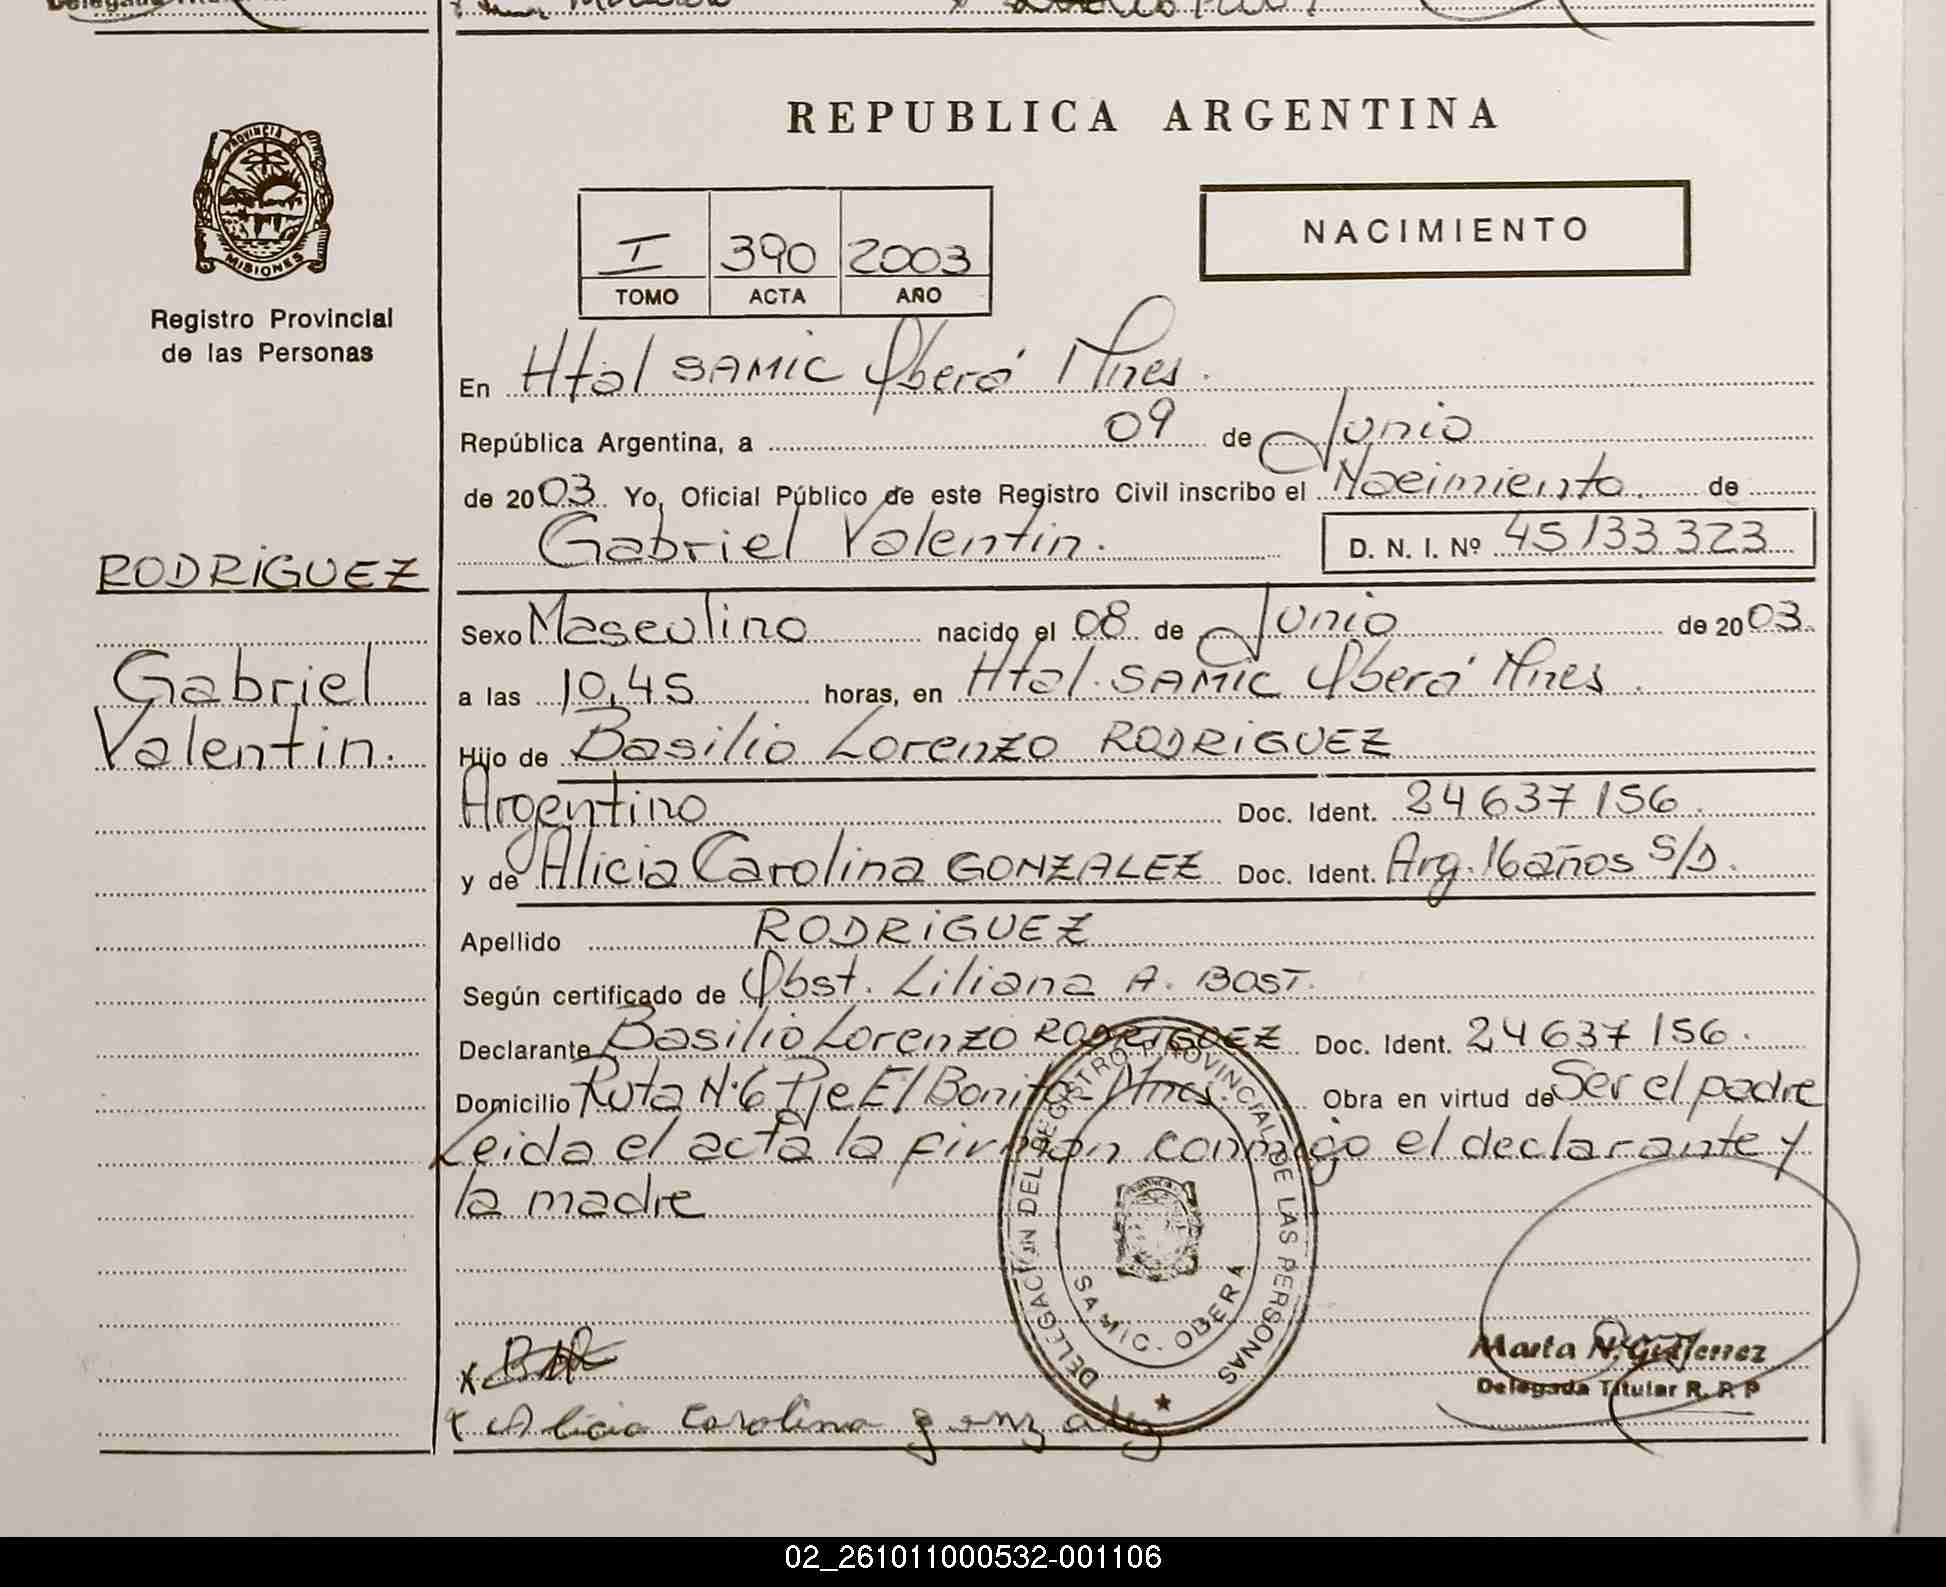 REPUBLICA ARGENTINA
PROVINCIA DE
MISIONES
Registro Provincial
de las Personas
NACIMIENTO
I 390 2003
TOMO ACTA AÑO
En Htal SAMIC Oberá Mnes.
República Argentina, a 09 de Junio
de 2003 Yo, Oficial Público de este Registro Civil inscribo el Nacimiento de
Gabriel Valentin. D. N. I. Nº 45133323
RODRIGUEZ
Gabriel
Valentin.
Sexo Masculino nacido el 08 de Junio de 2003
a las 10,45 horas, en Htal. SAMIC Oberá Mnes.
Hijo de Basilio Lorenzo RODRIGUEZ
Argentino Doc. Ident. 24637156.
y de Alicia Carolina GONZALEZ Doc. Ident. Arg. 16 años S/D.
Apellido RODRIGUEZ
Según certificado de Obst. Liliana A. BOST.
Declarante Basilio Lorenzo RODRIGUEZ Doc. Ident. 24637156.
Domicilio Ruta N·6 Pje El Bonito - Mnes. Obra en virtud de Ser el padre
Leida el acta la firman conmigo el declarante y
la madre
DELEGACION DEL REGISTRO PROVINCIAL DE LAS PERSONAS
SAMIC - OBERA
Marta N. Gutierrez
Delegada Titular R. P. P
x
x Alicia Carolina gonzalez
02_261011000532-001106